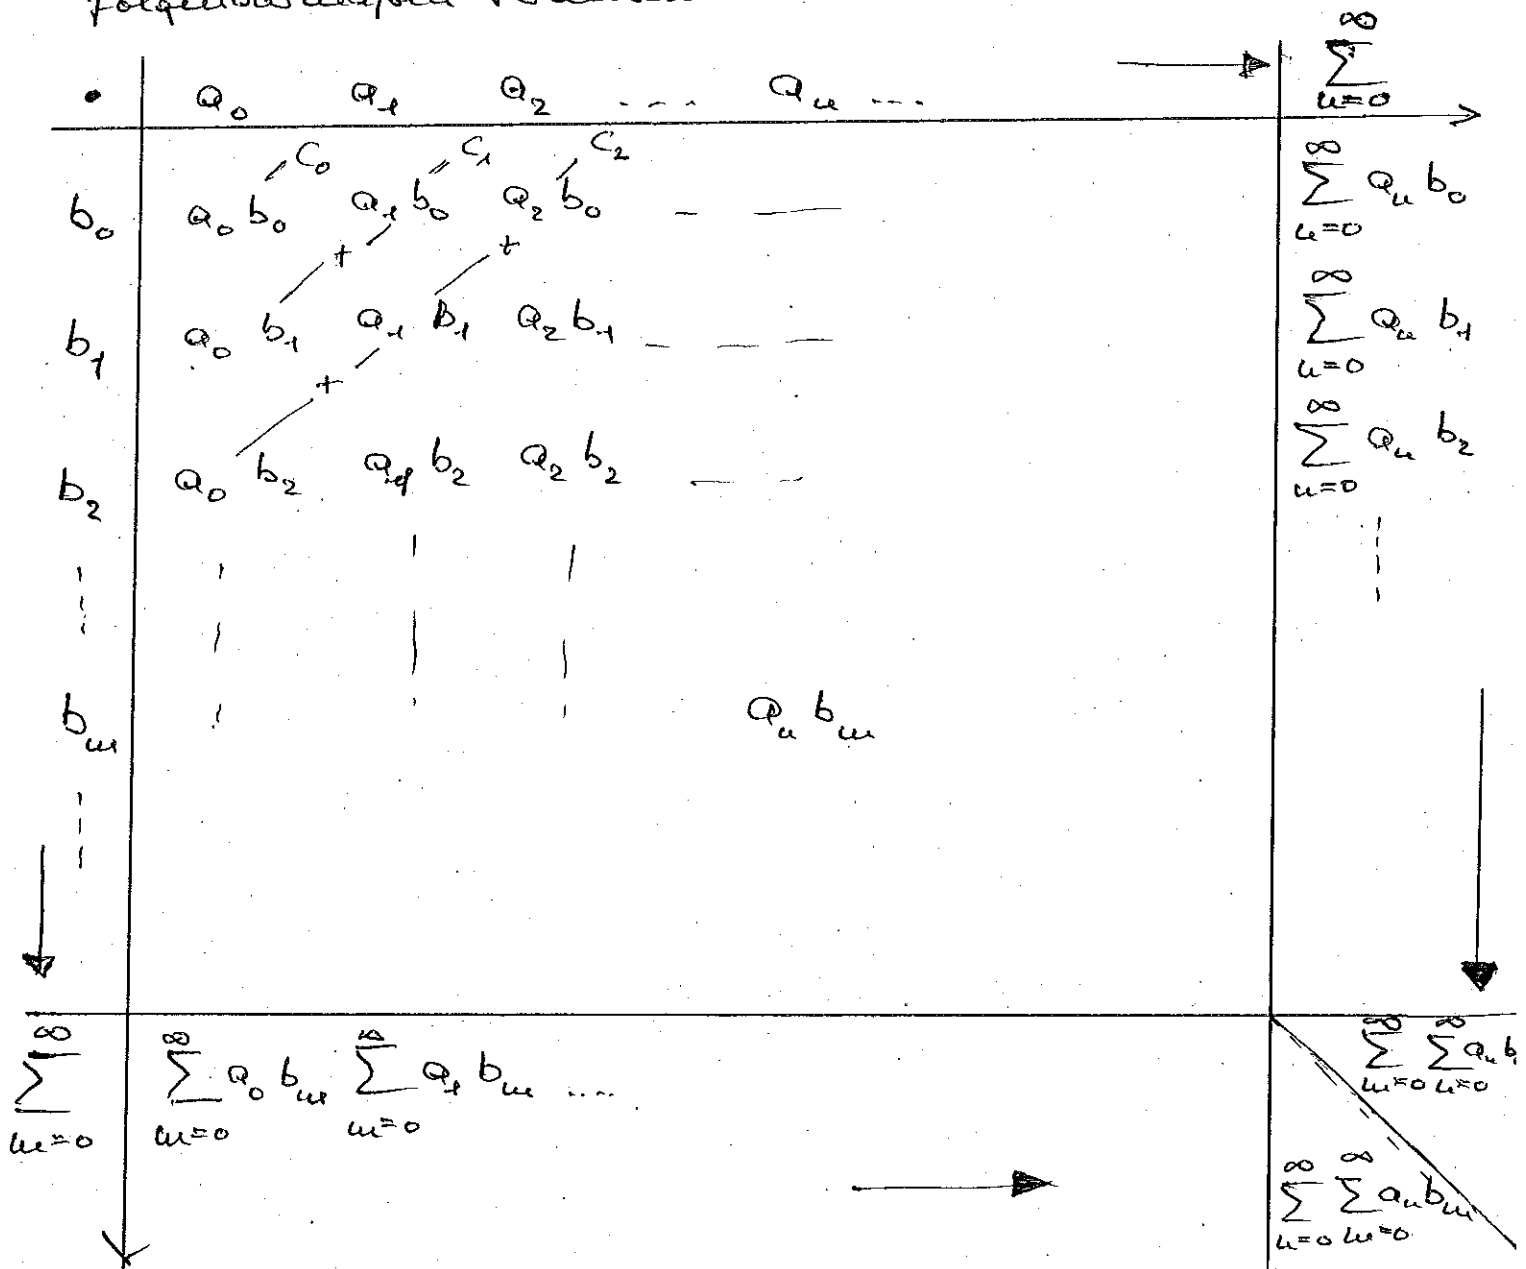 • a₀ a₁ a₂ .... aₙ .... ∑_{n=0}^{∞}
c₀ c₁ c₂
b₀ a₀ b₀ a₁ b₀ a₂ b₀ - — ∑_{n=0}^{∞} aₙ b₀
+ +
b₁ a₀ b₁ a₁ b₁ a₂ b₁ — — — ∑_{n=0}^{∞} aₙ b₁
+
b₂ a₀ b₂ a₁ b₂ a₂ b₂ — - ∑_{n=0}^{∞} aₙ b₂
bₘ aₙ bₘ
∑_{m=0}^{∞} ∑_{m=0}^{∞} a₀ bₘ ∑_{m=0}^{∞} a₁ bₘ .... ∑_{m=0}^{∞} ∑_{n=0}^{∞} aₙ b
∑_{n=0}^{∞} ∑_{m=0}^{∞} aₙ bₘ